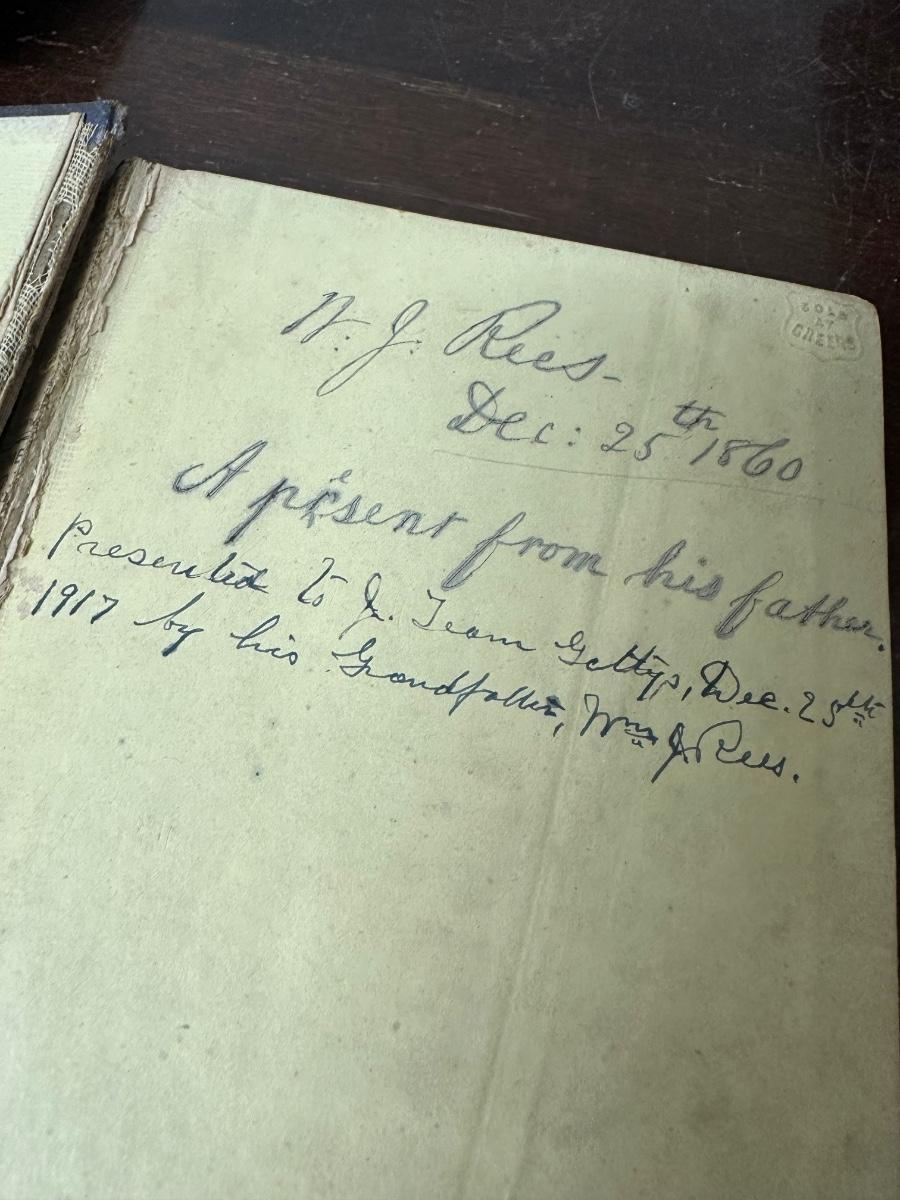 SOLD
AT
GREERS
W. J. Rees-
Dec: 25th 1860
A present from his father.
Presented to J. Team Gettys, Dec. 25th
1917 by his Grandfather, Wm J. Rees.